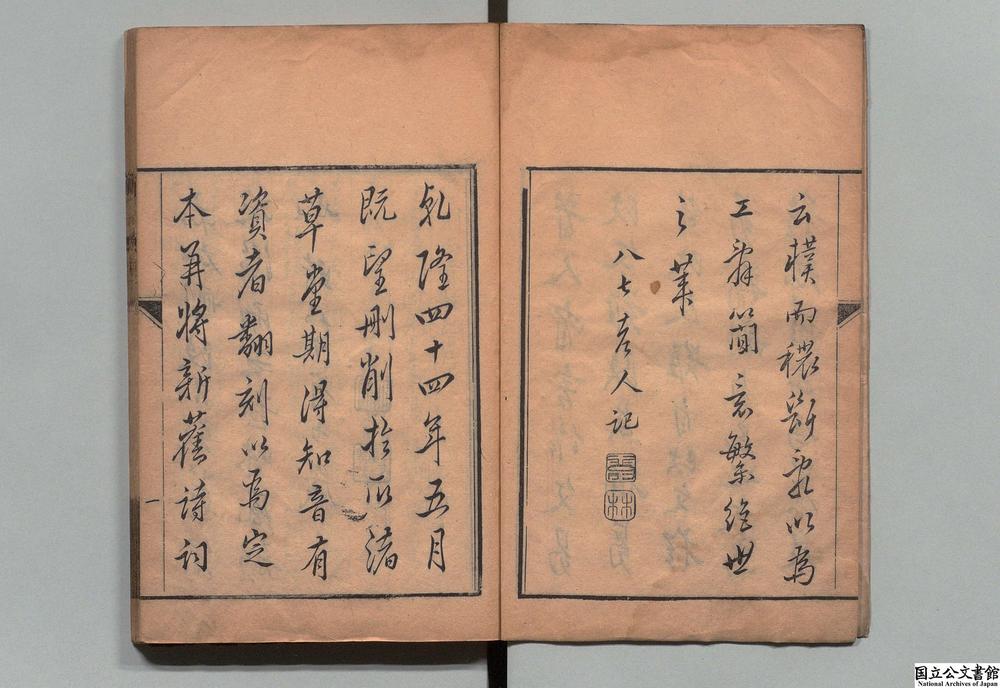 云樸而穠以為
工辭簡意繁絕世
之
八七老人記
乾隆四十四年五月
既望刪削於渚
草堂期得知音有
資者翻刻以為定
本并將新舊詩詞
一
国立公文書館
National Archives of Japan